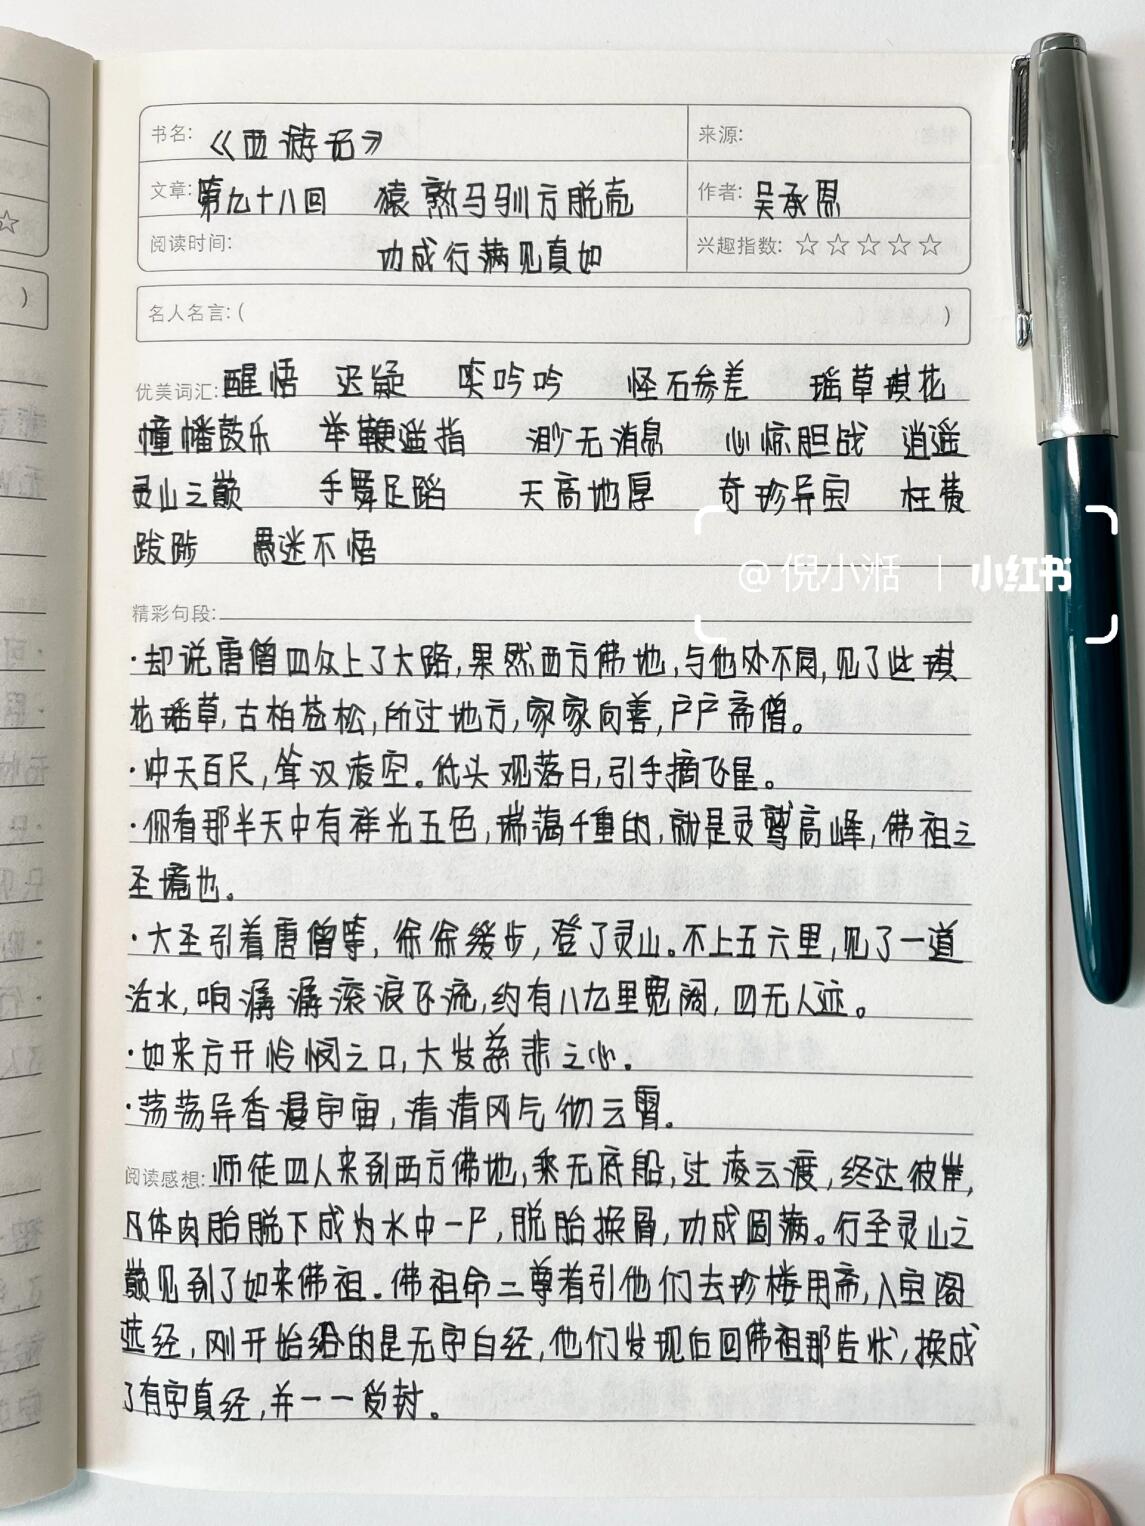 书名:《西游记》 来源:
文章:第九十八回 猿熟马驯方脱壳 作者:吴承恩
阅读时间: 功成行满见真如 兴趣指数:☆☆☆☆☆
名人名言:( )
优美词汇:醒悟 迟疑 笑吟吟 怪石参差 瑶草琪花
幢幡鼓乐 举鞭遥指 渺无消息 心惊胆战 逍遥
灵山之巅 手舞足蹈 天高地厚 奇珍异宝 枉费
跋涉 愚迷不悟
@倪小湉 | 小红书
精彩句段:
·却说唐僧四众上了大路,果然西方佛地,与他处不同,见了些琪
花瑶草,古柏苍松,所过地方,家家向善,户户斋僧。
·冲天百尺,耸汉凌空。低头观落日,引手摘飞星。
·你看那半天中有祥光五色,瑞蔼千重的,就是灵鹫高峰,佛祖之
圣境也。
·大圣引着唐僧等,徐徐缓步,登了灵山。不上五六里,见了一道
活水,响潺潺滚浪飞流,约有八九里宽阔,四无人迹。
·如来方开怜悯之口,大发慈悲之心。
·荡荡异香漫宇宙,清清风气彻云霄。
阅读感想:师徒四人来到西方佛地,乘无底船,过凌云渡,终达彼岸,
凡体肉胎脱下成为水中一尸,脱胎换骨,功成圆满。行至灵山之
巅见到了如来佛祖。佛祖命二尊者引他们去珍楼用斋,入宝阁
选经,刚开始给的是无字白经,他们发现后回佛祖那告状,换成
了有字真经,并一一受封。